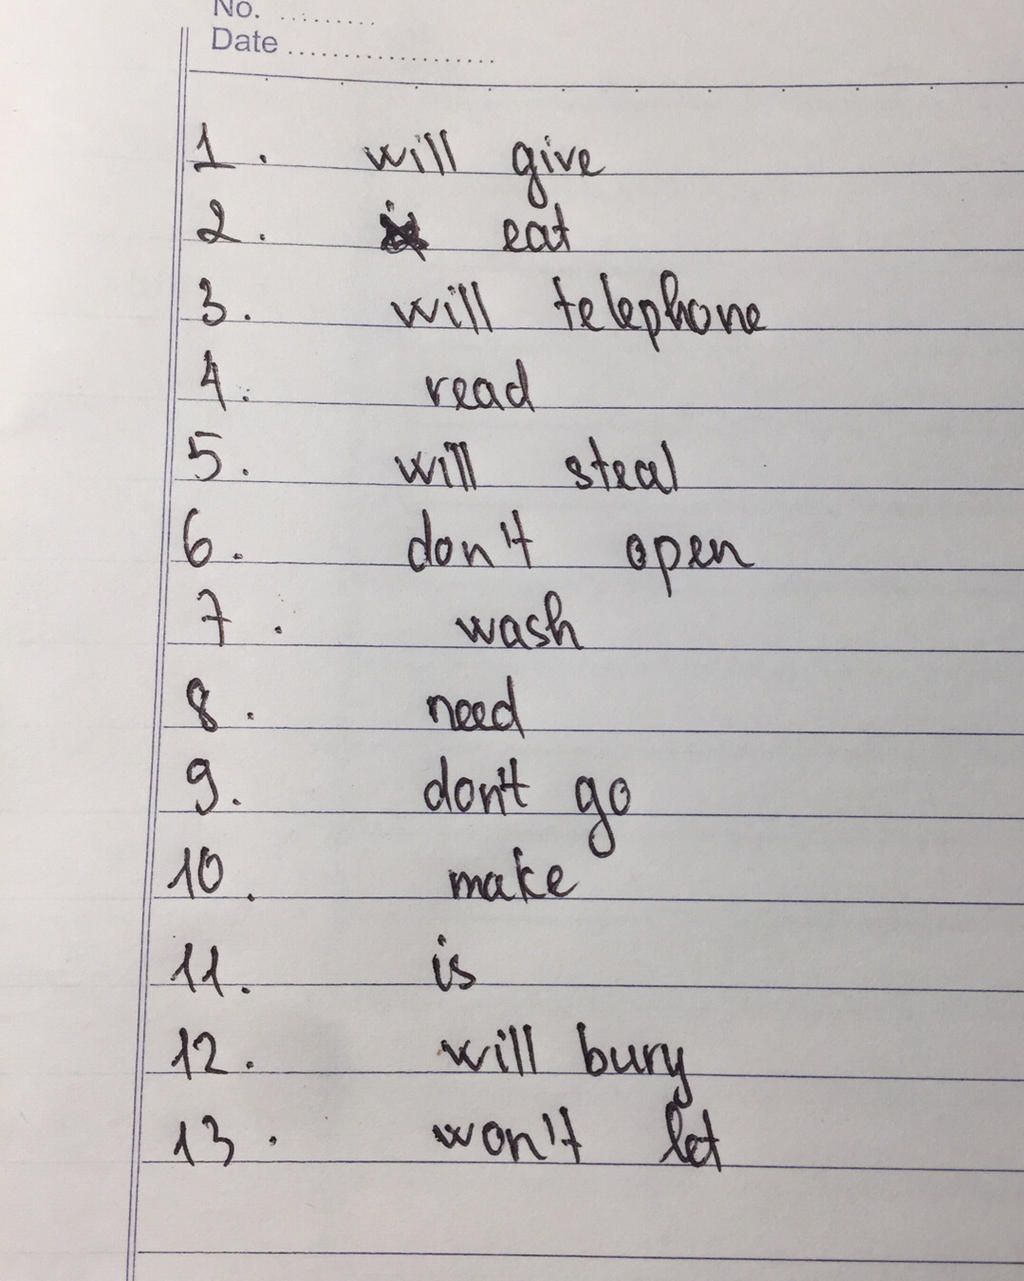 No. ..........
Date ....................
1. will give
2. eat
3. will telephone
4. read
5. will steal
6. don't open
7. wash
8. need
9. don't go
10. make
11. is
12. will bury
13. won't let